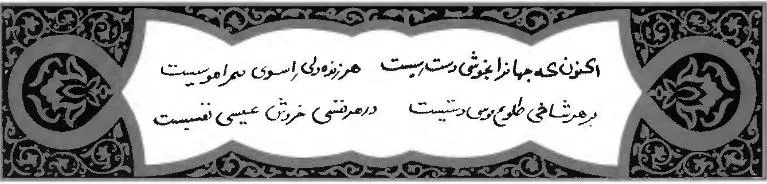 اکنون که جهانرا بخوشی دست رسیست هر زنده دلی را سوی صحرا هوسیست
بر هر شاخی طلوع موسی دستیست در هر نفسی خروش عیسی نفسیست